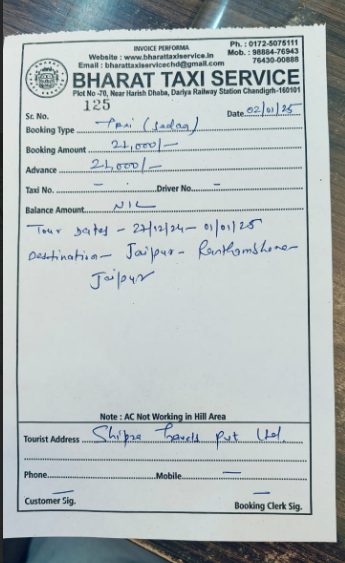 INVOICE PERFORMA
Ph. : 0172-5075111
Website : www.bharattaxiservice.in
Mob. : 98884-76943
Email : bharattaxiservicechd@gmail.com
76430-00888
BHARAT TAXI SERVICE
Plot No -70, Near Harish Dhaba, Dariya Railway Station Chandigrh-160101
125
Sr. No. Date 02/01/25
Booking Type Taxi (Sedan)
Booking Amount 21,000/-
Advance 21,000/-
Taxi No. - Driver No. -
Balance Amount NIL
Tour Dates - 27/12/24 - 01/01/25
Destination - Jaipur - Ranthambhore -
Jaipur
Note : AC Not Working in Hill Area
Tourist Address Shipra Travels Pvt Ltd.
Phone Mobile -
Customer Sig. Booking Clerk Sig.